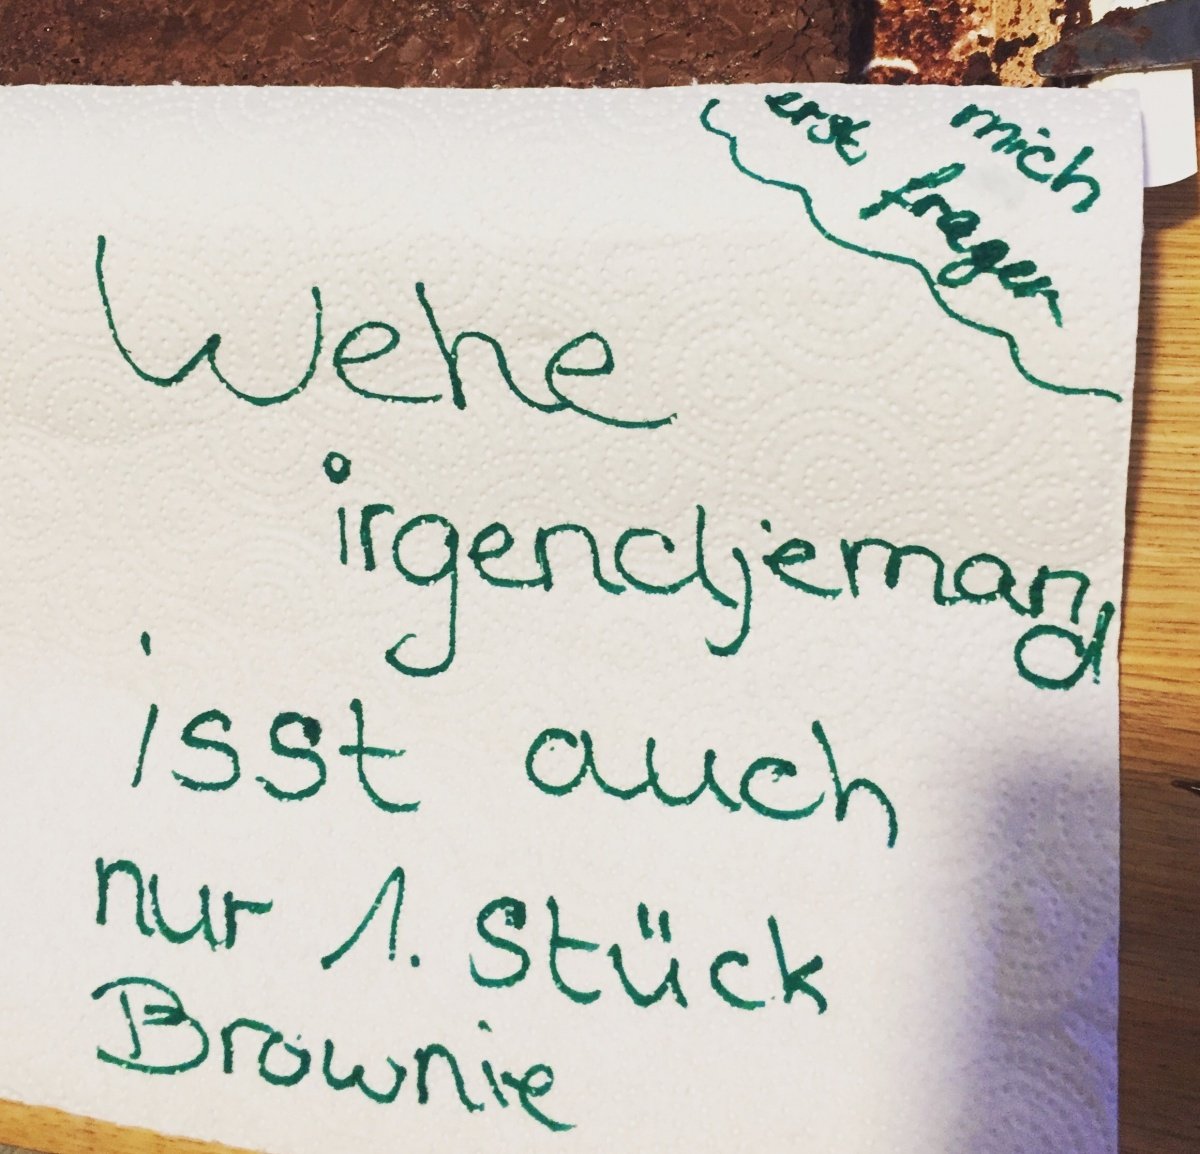 erst mich
fragen
Wehe
irgendjemand
isst auch
nur 1. Stück
Brownie